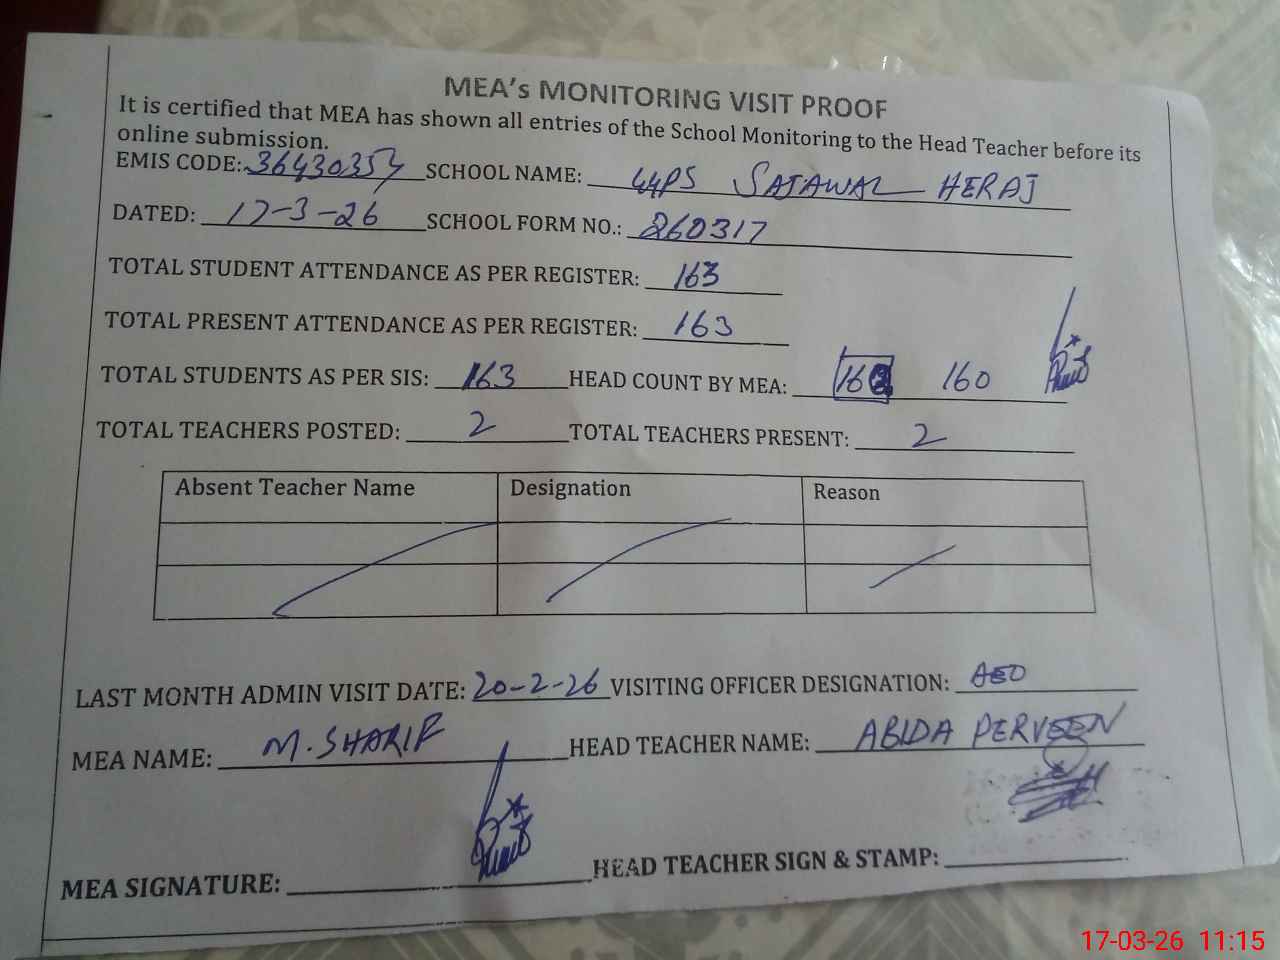 MEA's MONITORING VISIT PROOF
It is certified that MEA has shown all entries of the School Monitoring to the Head Teacher before its
online submission.
EMIS CODE: 36430354 SCHOOL NAME: GGPS SAJAWAL HERAJ
DATED: 17-3-26 SCHOOL FORM NO.: 260317
TOTAL STUDENT ATTENDANCE AS PER REGISTER: 163
TOTAL PRESENT ATTENDANCE AS PER REGISTER: 163
TOTAL STUDENTS AS PER SIS: 163 HEAD COUNT BY MEA: 160
TOTAL TEACHERS POSTED: 2 TOTAL TEACHERS PRESENT: 2
Absent Teacher Name Designation Reason
LAST MONTH ADMIN VISIT DATE: 20-2-26 VISITING OFFICER DESIGNATION: AEO
MEA NAME: M. SHARIF HEAD TEACHER NAME: ABIDA PERVEEN
MEA SIGNATURE: HEAD TEACHER SIGN & STAMP:
17-03-26 11:15